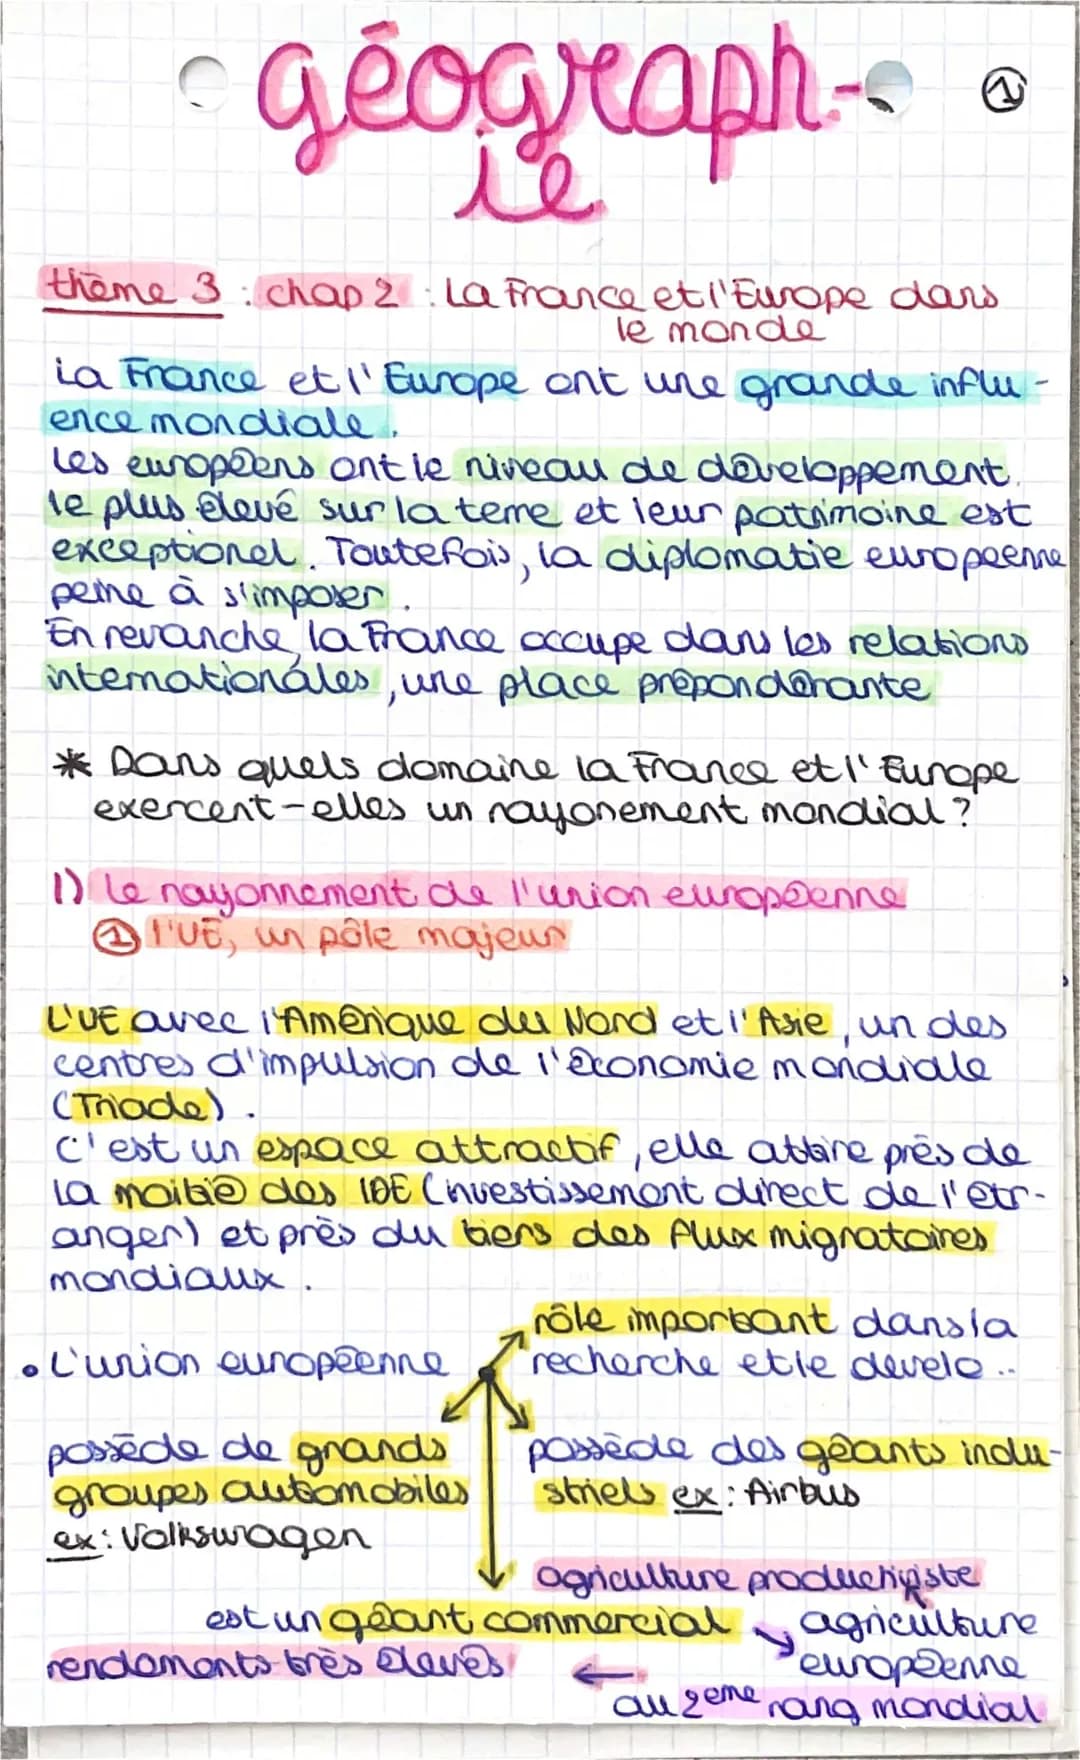 géograph-
ie
1
thème 3 : chap 2 : La France et l'Europe dans
le monde
La France et l'Europe ont une grande influ-
ence mondiale.
Les européens ont le niveau de développement
le plus élevé sur la terre et leur patrimoine est
exceptionel. Toutefois, la diplomatie européenne
peine à s'imposer.
En revanche, la France occupe dans les relations
internationales, une place prépondérante
* Dans quels domaine la France et l'Europe
exercent-elles un rayonement mondial ?
1) Le rayonnement de l'union européenne
1 l'UE, un pôle majeur
L'UE avec l'Amérique du Nord et l'Asie, un des
centres d'impulsion de l'économie mondiale
(Triade).
C'est un espace attractif, elle attire près de
la moitié des IDE (nvestissement direct de l'étr-
anger) et près du tiers des flux migratoires
mondiaux.
rôle important dans la
• L'union européenne recherche et le dévelo..
possède de grands possède des géants indu-
groupes automobiles striels ex : Airbus
ex : Volkswagen
agriculture productiviste
est un géant commercial agriculture
rendements très élevés européenne
au 2eme rang mondial